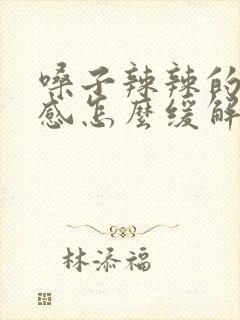 嗓子辣辣的
感怎麼缓解
林添福